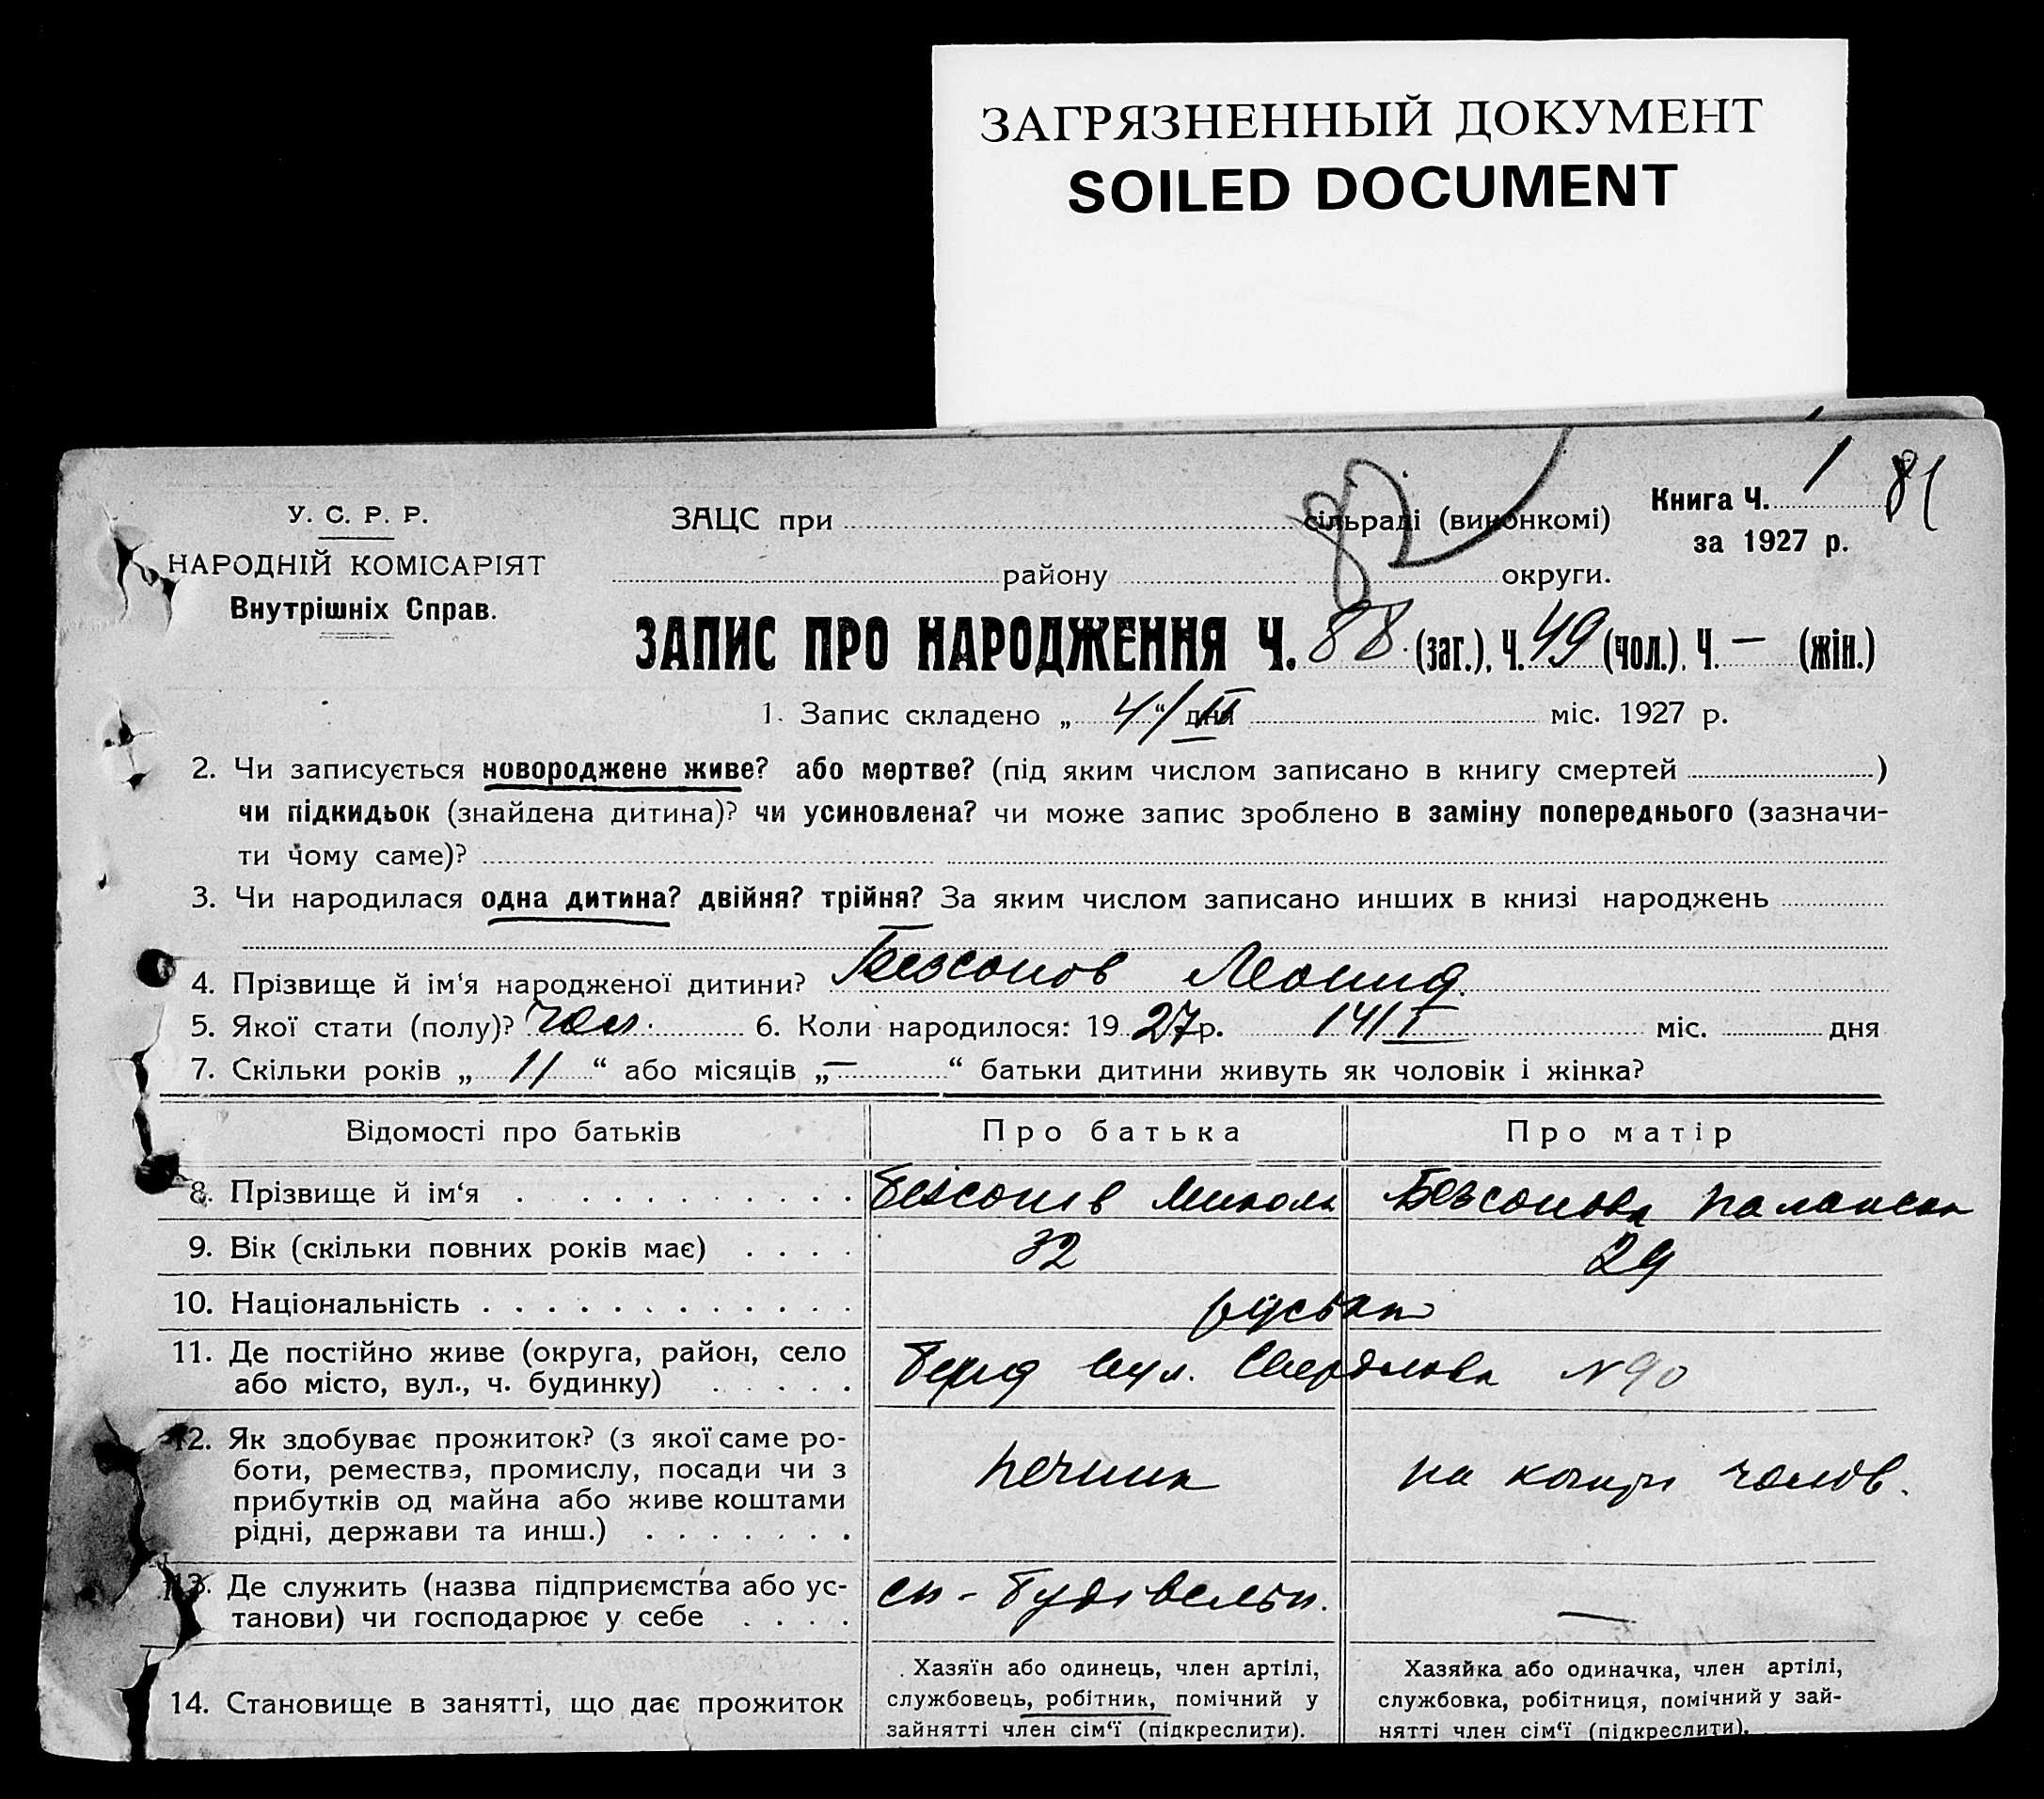 ЗАГРЯЗНЕННЫЙ ДОКУМЕНТ
SOILED DOCUMENT
82
Книга Ч. 1 81
за 1927 р.
У. С. Р. Р.
НАРОДНІЙ КОМІСАРІЯТ
Внутрішніх Справ.
ЗАЦС при сільраді (виконкомі)
району округи.
ЗАПИС ПРО НАРОДЖЕННЯ Ч. 88 (заг.), Ч. 49 (чол.), Ч. — (жін.)
1. Запис складено „ 4 “ дня міс. 1927 р.
2. Чи записується новороджене живе? або мертве? (під яким числом записано в книгу смертей )
чи підкидьок (знайдена дитина)? чи усиновлена? чи може запис зроблено в заміну попереднього (зазначи-
ти чому саме)?
3. Чи народилася одна дитина? двійня? трійня? За яким числом записано инших в книзі народжень
4. Прізвище й ім‘я народженої дитини? Безсонов Леонид.
5. Якої стати (полу)? чол. 6. Коли народилося: 19 27 р. 14/I міс. дня
7. Скільки років „ 11 “ або місяців „ — “ батьки дитини живуть як чоловік і жінка?
Відомості про батьків Про батька Про матір
8. Прізвище й ім‘я Безсонів Микола Безсонова Палажка
9. Вік (скільки повних років має) 32 29
10. Національність
11. Де постійно живе (округа, район, село
або місто, вул., ч. будинку) вул. Свердлова N 90
12. Як здобуває прожиток? (з якої саме ро-
боти, ремества, промислу, посади чи з
прибутків од майна або живе коштами
рідні, держави та инш.) печник на кошти чолов.
13. Де служить (назва підприємства або ус-
танови) чи господарює у себе сп - будівельн. —
14. Становище в занятті, що дає прожиток
Хазяїн або одинець, член артілі,
службовець, робітник, помічний у
зайнятті член сім‘ї (підкреслити).
Хазяйка або одиначка, член артілі,
службовка, робітниця, помічний у зай-
нятті член сім‘ї (підкреслити).